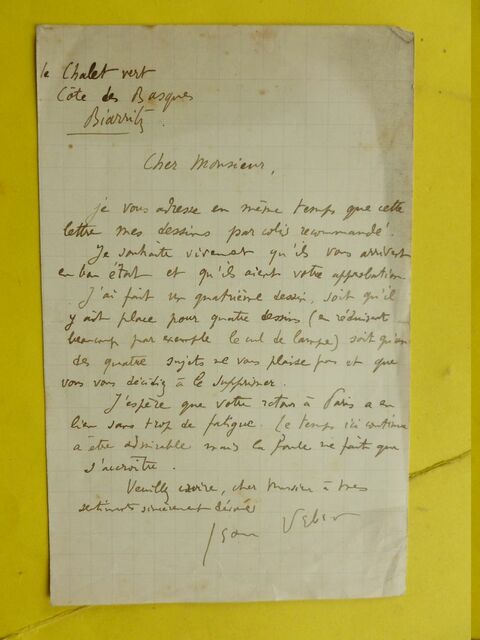 le Chalet vert
Côte des Basques
Biarritz
Cher Monsieur,
je vous adresse en même temps que cette
lettre mes dessins par colis recommandé.
Je souhaite vivement qu'ils vous arrivent
en bon état et qu'ils aient votre approbation
J'ai fait un quatrième dessin, soit qu'il
y ait place pour quatre dessins (en réduisant
beaucoup par exemple le cul de lampe) soit qu'un
des quatre sujets ne vous plaise pas et que
vous vous décidiez à le supprimer.
J'espère que votre retour à Paris a eu
lieu sans trop de fatigue. Le temps ici continue
à être admirable mais la foule ne fait que
s'accroître.
Veuillez croire, cher Monsieur à mes
sentiments sincèrement dévoués
Jean Veber